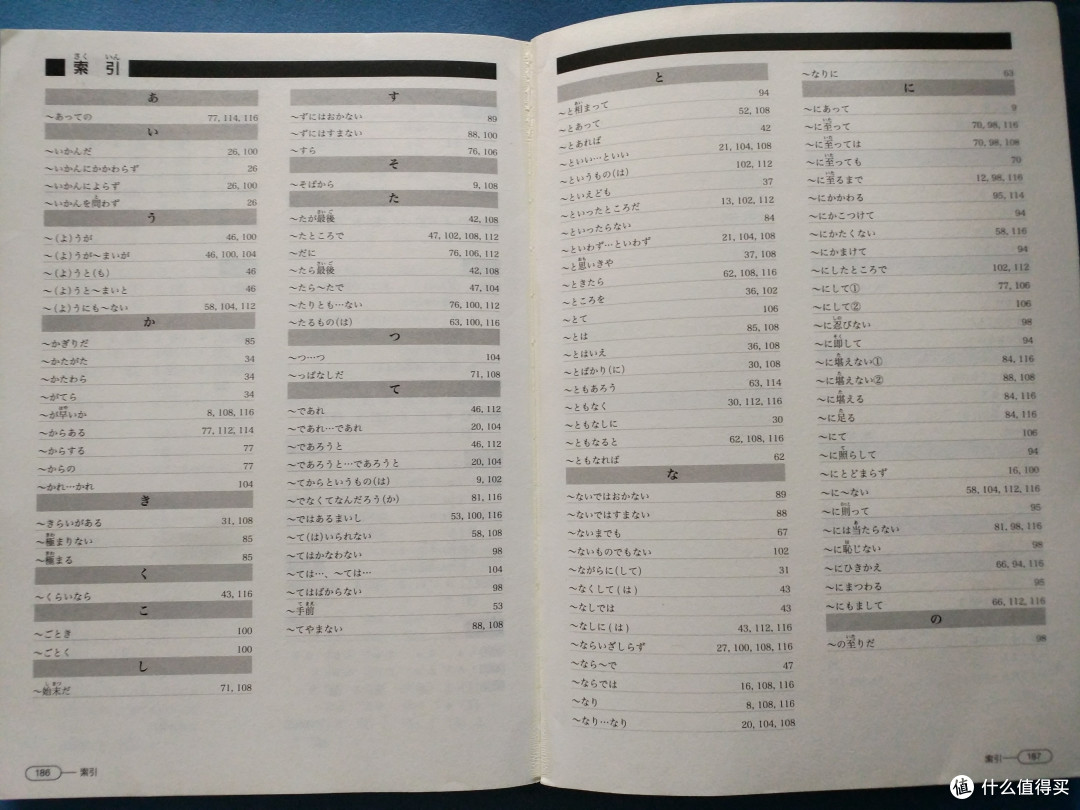 さく いん
索 引
あ
～あっての 77, 114, 116
い
～いかんだ 26, 100
～いかんにかかわらず 26
～いかんによらず 26, 100
～いかんを問わず 26
う
～(よ)うが 46, 100
～(よ)うが～まいが 46, 100, 104
～(よ)うと(も) 46
～(よ)うと～まいと 46
～(よ)うにも～ない 58, 104, 112
か
～かぎりだ 85
～かたがた 34
～かたわら 34
～がてら 34
～が早いか 8, 108, 116
～からある 77, 112, 114
～からする 77
～からの 77
～かれ…かれ 104
き
～きらいがある 31, 108
～極まりない 85
～極まる 85
く
～くらいなら 43, 116
こ
～ごとき 100
～ごとく 100
し
～始末だ 71, 108
す
～ずにはおかない 89
～ずにはすまない 88, 100
～すら 76, 106
そ
～そばから 9, 108
た
～たが最後 42, 108
～たところで 47, 102, 108, 112
～だに 76, 106, 112
～たら最後 42, 108
～たら～たで 47, 104
～たりとも…ない 76, 100, 112
～たるもの(は) 63, 100, 116
つ
～つ…つ 104
～っぱなしだ 71, 108
て
～であれ 46, 112
～であれ…であれ 20, 104
～であろうと 46, 112
～であろうと…であろうと 20, 104
～てからというもの(は) 9, 102
～でなくてなんだろう(か) 81, 116
～ではあるまいし 53, 100, 116
～て(は)いられない 58, 108
～てはかなわない 98
～ては…、～ては… 104
～てはばからない 98
～手前 53
～てやまない 88, 108
186 索引
と
～と相まって 94
～とあって 52, 108
～とあれば 42
～といい…といい 21, 104, 108
～というもの(は) 102, 112
～といえども 37
～といったところだ 13, 102, 112
～といったらない 84
～といわず…といわず 21, 104, 108
～と思いきや 37, 108
～ときたら 62, 108, 116
～ところを 36, 102
～とて 106
～とは 85, 108
～とはいえ 36, 108
～とばかり(に) 30, 108
～ともあろう 63, 114
～ともなく 30, 112, 116
～ともなしに 30
～ともなると 62, 108, 116
～ともなれば 62
な
～ないではおかない 89
～ないではすまない 88
～ないまでも 67
～ないものでもない 102
～ながらに(して) 31
～なくして(は) 43
～なしでは 43
～なしに(は) 43, 112, 116
～ならいざしらず 27, 100, 108, 116
～なら～で 47
～ならでは 16, 108, 116
～なり 8, 108, 116
～なり…なり 20, 104, 108
～なりに 63
に
～にあって 9
～に至って 70, 98, 116
～に至っては 70, 98, 108
～に至っても 70
～に至るまで 12, 98, 116
～にかかわる 95, 114
～にかこつけて 94
～にかたくない 58, 116
～にかまけて 94
～にしたところで 102, 112
～にして① 77, 106
～にして② 106
～に忍びない 98
～に即して 94
～に堪えない① 84, 116
～に堪えない② 88, 108
～に堪える 84, 116
～に足る 84, 116
～にて 106
～に照らして 94
～にとどまらず 16, 100
～に～ない 58, 104, 112, 116
～に則って 95
～には当たらない 81, 98, 116
～に恥じない 98
～にひきかえ 66, 94, 116
～にまつわる 95
～にもまして 66, 112, 116
の
～の至りだ 98
索引 187
值 什么值得买